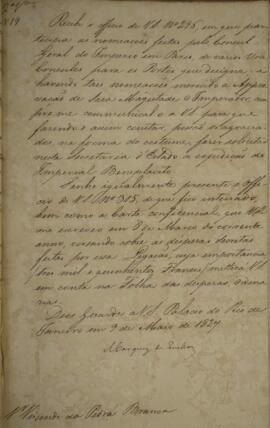 Recebi o officio de V.S. Nº 295, em que par-
ticipa as nomeações feitas pelo Consul
Geral do Imperio em Paris, de varios Vice
Consules para os Portos que designa, e
havendo taes nomeações merecido a Appro-
vação de Sua Magestade o Imperador, cum
pre-me communical-o a V.S. para que
fazendo-o assim constar, possão os agracia-
dos, na forma do costume, fazer solicitar
nesta Secretaria d'Estado a expedição do
Imperial Beneplacito.
Tenho igualmente presente o Offi-
cio de V.S. Nº 315, de que fico inteirado,
bem como a carta confidencial, que V.S.
me escreveo em 3 de Março do corrente
anno, versando sobre as despezas secretas
feitas por essa Legação, cuja importancia
tres mil e quinhentos Francos, metterá V.S.
em conta na Folha das despezas ordina
rias.
Deos Guarde a V.S. Palacio do Rio de
Janeiro em 9 de Maio de 1827
Marquez de Queluz
Sr. Visconde da Pedra Branca